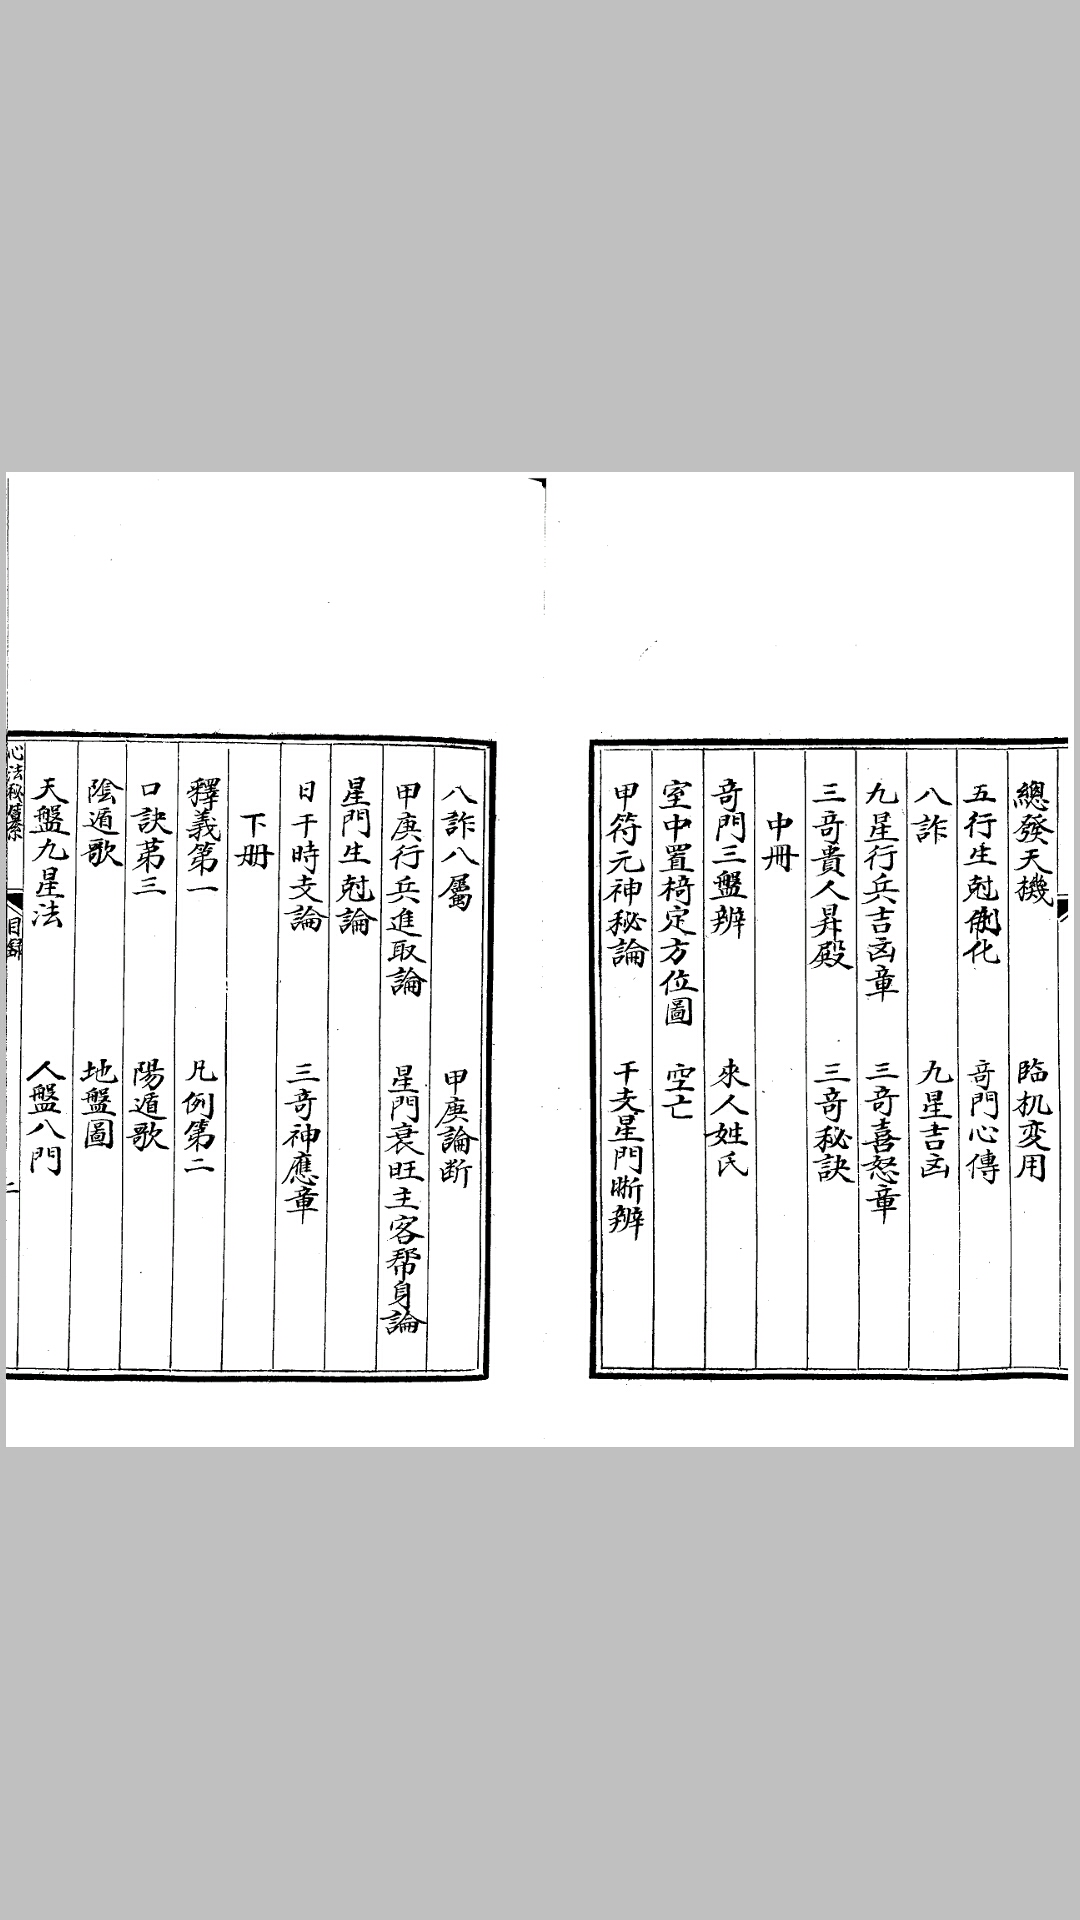 總發天機　臨机変用
五行生尅制化　竒門心傳
八詐　九星吉凶
九星行兵吉凶章　三竒喜怒章
三竒貴人昇殿　三竒秘訣
中冊
竒門三盤辨　來人姓氏
室中置椅定方位圖　空亡
甲符元神秘論　干支星門晰辨
八詐八屬　甲庚論断
甲庚行兵進取論　星門衰旺主客帮身論
星門生尅論
日干時支論　三竒神應章
下册
釋義第一　凡例第二
口訣苐三　陽遁歌
陰遁歌　地盤圖
天盤九星法　人盤八門
心法秘纂　目録　二